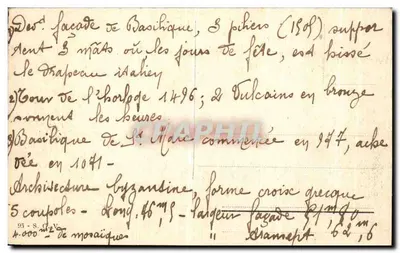 1) Devt façade de Basilique, 3 piliers (1505), suppor
tent 3 mâts où les jours de fête, est hissé
le drapeau italien
2) Tour de l'horloge 1496; 2 Vulcains en bronze
sonnent les heures
3) Basilique de St Marc commencée en 977, ache
vée en 1071 -
Architecture byzantine, forme croix grecque
5 coupoles - Long. 76m,5 - largeur façade 51m,80
4.000 m2 de mosaïques " transept 62m,6